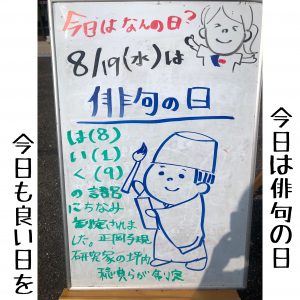 今日はなんの日?
8/19(水)は
俳句の日
は(8)
い(1)
く(9)
の語呂
にちなみ
制定されま
した。正岡子規
研究家の坪内
稔典らが制定
今日は俳句の日
今日も良い日を